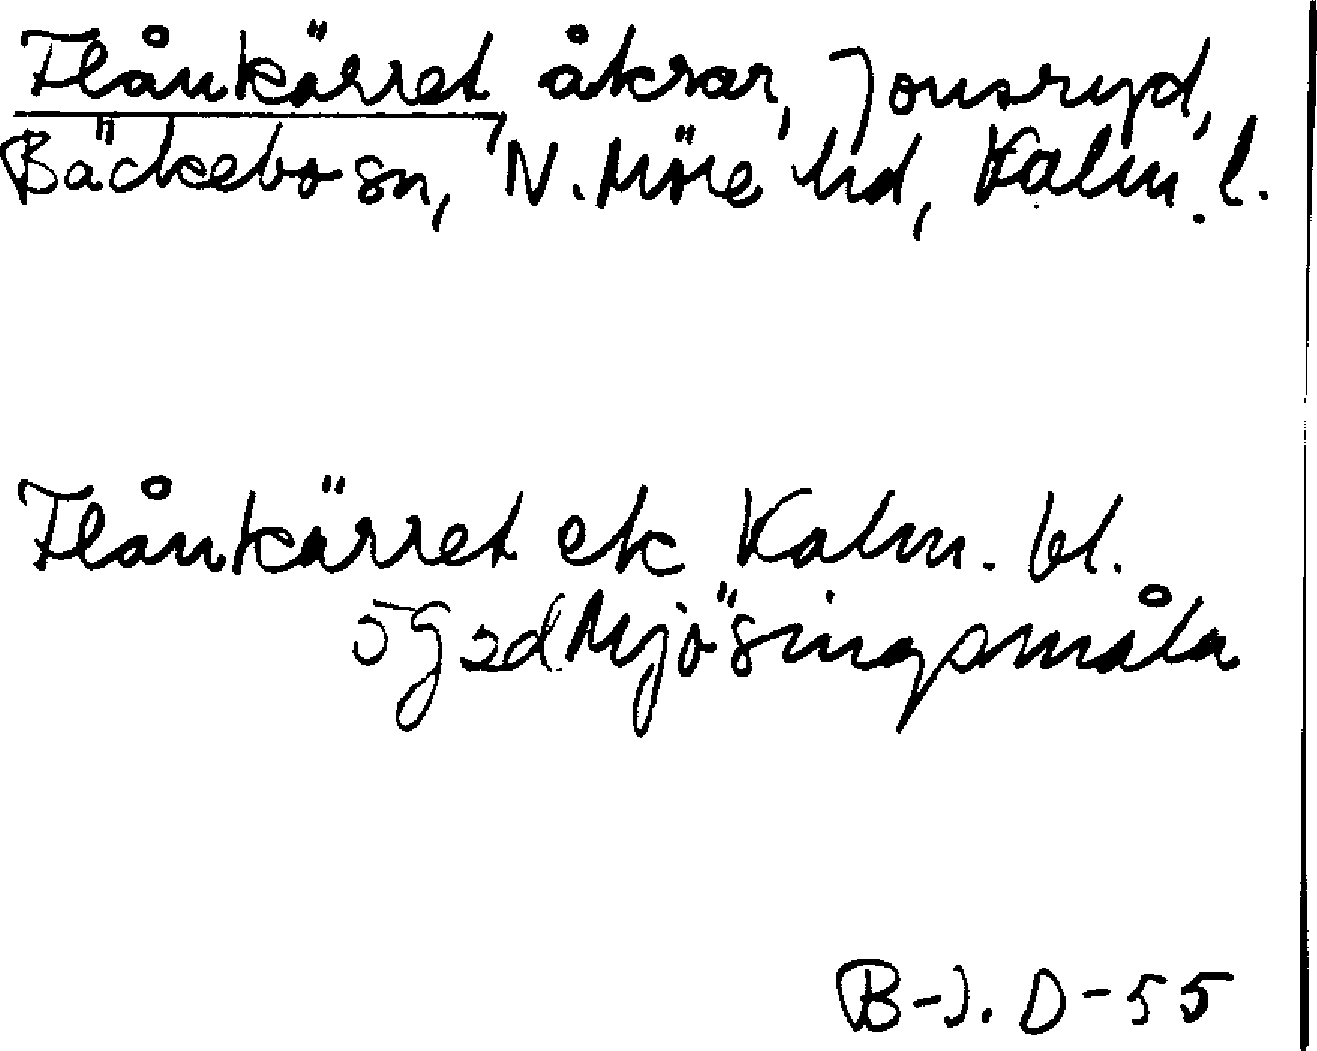 Flånkärret, åkrar, Jonsryd,
Bäckebo sn, N. Möre hd, Kalm. l.
Flånkärret ek Kalm. bl.
5g 2d Mjösingsmåla
B-J. D-55